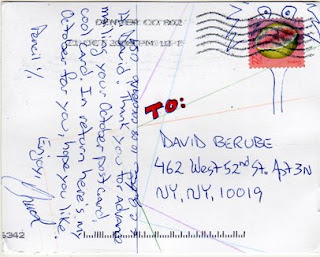 DENVER CO 802
Hi David! Thank you for Advance
mailing your October postcard,
cool card. In return here's my
October for you, hope you like.
Enjoy!
TO:
DAVID BERUBE
462 West 52nd St. Apt 3N
NY, NY, 10019